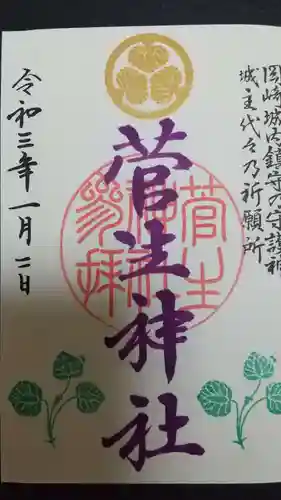 岡崎城内鎮守の守護神
城主代々乃祈願所
菅生神社
令和三年一月二日